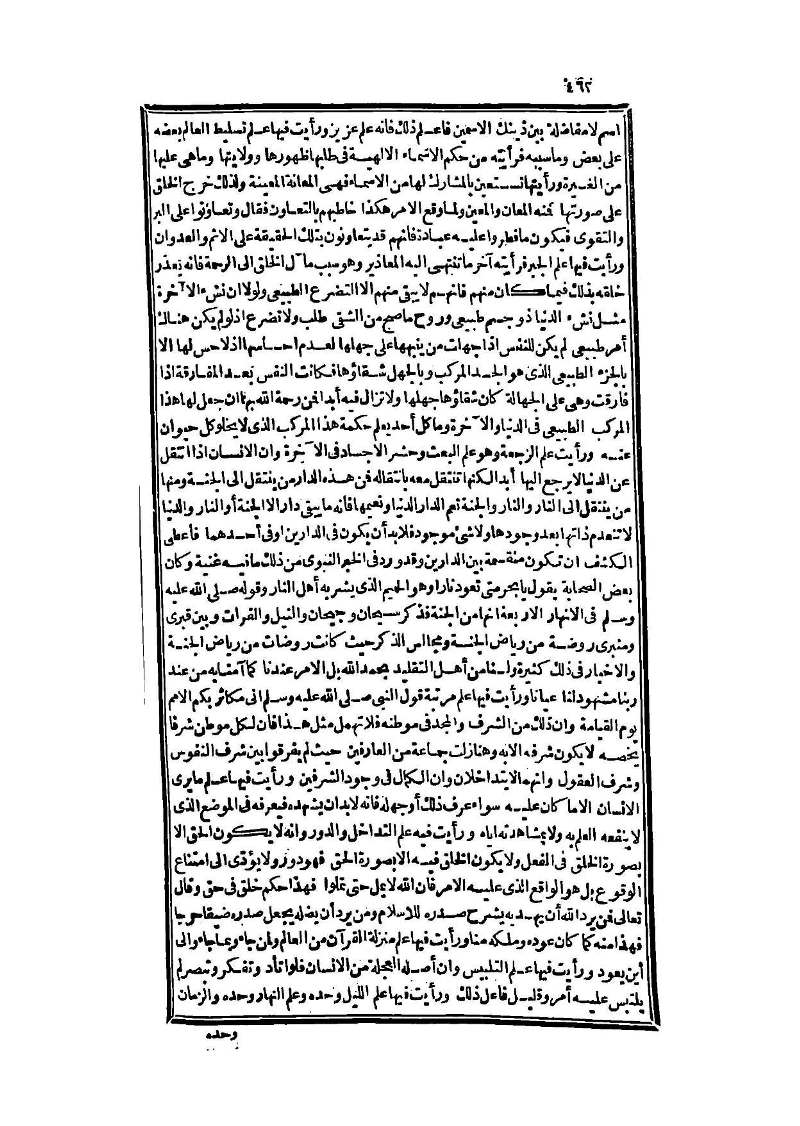 ٤٦٢
اسم لا مفاضلة بين ذينك الاسمين فاعلم ذلك فانه علم عزيز ورأيت فيها علم تسليط العالم بعضه
على بعض وما سببه فرأيته من حكم الاسماء الالهية فى طلبها ظهورها وولايتها وماهى عليها
من الغيرة ورأيتها تستعين بالمشارك لها من الاسماء فهى المعانة المعينة ولذلك خرج الخلق
على صورتها فمنه المعان والمعين ولما وقع الامر هكذا خاطبهم بالتعاون فقال وتعاونوا على البر
والتقوى فيكون ما فطروا عليه عبادة فانهم قد يتعاونون بتلك الحقيقة على الاثم والعدوان
ورأيت فيها علم الجبر فرأيته آخر ما تنتهى اليه المعاذير وهو سبب مآل الخلق الى الرحمة فانه يعذر
خلقه بذلك فيما كان منهم فانهم لا يبقى منهم الا التضرع الطبيعى ولولا ان نشء الآخرة
مثل نشء الدنيا ذو جسم طبيعى وروح ما صح من الشقى طلب ولا تضرع اذ لو لم يكن هناك
أمر طبيعى لم يكن للنفس اذا جهلت من ينبهها على جهلها لعدم احساسها اذ لا حس لها الا
بالجزء الطبيعى الذى هو الجسد المركب وبالجهل شقاؤها فكانت النفس بعد المفارقة اذا
فارقت وهى على الجهالة كان شقاؤها جهلها ولا تزال فيه أبدا فمن رحمة الله بها ان جعل لها هذا
المركب الطبيعى فى الدنيا والآخرة وما كل أحد يعلم حكمة هذا المركب الذى لا يخلو كل حيوان
عنه ورأيت علم الرجعة وهو علم البعث وحشر الاجساد فى الآخرة وان الانسان اذا انتقل
عن الدنيا لا يرجع اليها أبدا لكنها تنتقل معه بانتقاله فمن هذه الدار من ينتقل الى الجنة ومنها
من ينتقل الى النار والنار والجنة تعم الدار الدنيا ونعيمها فانه ما يبقى دار الا الجنة أو النار والدنيا
لا تنعدم ذاتها بعد وجودها ولا شئ موجود فلا بد أن يكون فى الدارين او فى أحدهما فأعطى
الكشف ان تكون منقسمة بين الدارين وقد ورد فى الخبر النبوى من ذلك ما فيه غنية وكان
بعض الصحابة يقول يا بحر متى تعود نارا وهو الحميم الذى يشربه أهل النار وقوله صلى الله عليه
وسلم فى الانهار الاربعة انها من الجنة فذكر سيحان وجيحان والنيل والفرات وبين قبرى
ومنبرى روضة من رياض الجنة ومجالس الذكر حيث كانت روضات من رياض الجنة
والاخبار فى ذلك كثيرة ولسنا من أهل التقليد بحمد الله بل الامر عندنا كما آمنا به من عند
ربنا شهودلنا عيانا ورأيت فيها علم مرتبة قول النبى صلى الله عليه وسلم انى مكاثر بكم الامم
يوم القيامة وان ذلك من الشرف والمجد فى موطنه فلا تهمل مثل هذا فان لكل موطن شرفا
يخصه لا يكون شرفه الا به وهنا زلت جماعة من العارفين حيث لم يفرقوا بين شرف النفوس
وشرف العقول وانهما لا يتداخلان وان الكمال فى وجود الشرفين ورأيت فيها علم ما يرى
الانسان الا ما كان عليه سواء عرف ذلك أو جهله فانه لا بد ان يشهده فيعرفه فى الموضع الذى
لا ينفعه العلم به ولا مشاهدته اياه ورأيت فيه علم التداخل والدور وانه لا يكون الحق الا
بصورة الخلق فى الفعل ولا يكون الخلق فيه الا بصورة الحق فهو دور ولا يؤدى الى امتناع
الوقوع بل هو الواقع الذى عليه الامر فان الله لا يمل حتى تملوا فهذا حكم خلق فى حق وقال
تعالى فمن يرد الله أن يهديه يشرح صدره للاسلام ومن يرد أن يضله يجعل صدره ضيقا حرجا
فهذا منه كما كان عوده وملكه منا ورأيت فيها علم منزلة القرآن من العالم ولمن جاء وبما جاء والى
أين يعود ورأيت فيها علم التلبيس وان أصله العجلة من الانسان فلو اتأد وتفكر وتبصر لم
يلتبس عليه أمر وقليل فاعل ذلك ورأيت فيها علم الليل وحده وعلم النهار وحده والزمان
وحده